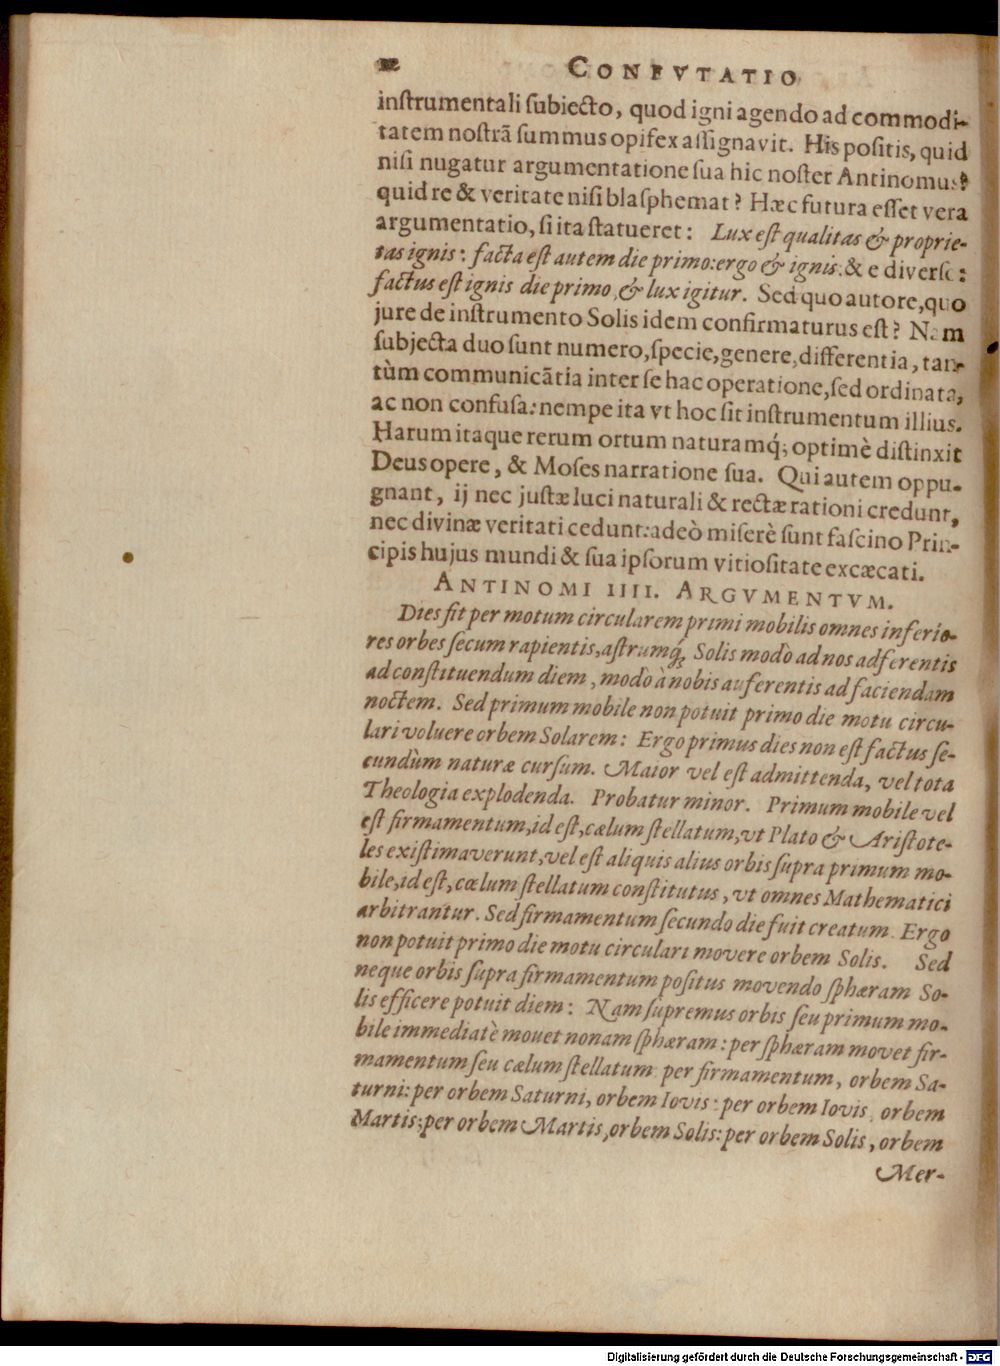 CONFVTATIO
inſtrumentali ſubiecto, quod igni agendo ad commodi-
tatem noſtrã ſummus opifex aſſignavit. His poſitis, quid
niſi nugatur argumentatione ſua hic noſter Antinomus?
quid re & veritate niſi blaſphemat? Hæc futura eſſet vera
argumentatio, ſi ita ſtatueret: Lux eſt qualitas & proprie-
tas ignis: facta eſt autem die primo: ergo & ignis. & e diverſo:
factus eſt ignis die primo, & lux igitur. Sed quo autore, quo
jure de inſtrumento Solis idem confirmaturus eſt? Nam
ſubjecta duo ſunt numero, ſpecie, genere, differentia, tan-
tùm communicãtia inter ſe hac operatione, ſed ordinata,
ac non confuſa: nempe ita vt hoc ſit inſtrumentum illius.
Harum itaque rerum ortum naturamq́; optimè diſtinxit
Deus opere, & Moſes narratione ſua. Qui autem oppu-
gnant, ij nec juſtæ luci naturali & rectæ rationi credunt,
nec divinæ veritati cedunt: adeò miſerè ſunt faſcino Prin-
cipis hujus mundi & ſua ipſorum vitioſitate excæcati.
ANTINOMI IIII. ARGVMENTVM.
Dies fit per motum circularem primi mobilis omnes inferio-
res orbes ſecum rapientis, aſtrumq́; Solis modò ad nos adferentis
ad conſtituendum diem, modò à nobis auferentis ad faciendam
noctem. Sed primum mobile non potuit primo die motu circu-
lari voluere orbem Solarem: Ergo primus dies non eſt factus ſe-
cundùm naturæ curſum. Maior vel eſt admittenda, vel tota
Theologia explodenda. Probatur minor. Primum mobile vel
eſt firmamentum, id eſt, cælum ſtellatum, vt Plato & Ariſtote-
les exiſtimaverunt, vel eſt aliquis alius orbis ſupra primum mo-
bile, id eſt, cœlum ſtellatum conſtitutus, vt omnes Mathematici
arbitrantur. Sed firmamentum ſecundo die fuit creatum. Ergo
non potuit primo die motu circulari movere orbem Solis. Sed
neque orbis ſupra firmamentum poſitus movendo ſphæram So-
lis efficere potuit diem: Nam ſupremus orbis ſeu primum mo-
bile immediatè mouet nonam ſphæram: per ſphæram movet fir-
mamentum ſeu cælum ſtellatum: per firmamentum, orbem Sa-
turni: per orbem Saturni, orbem Iovis: per orbem Iovis, orbem
Martis: per orbem Martis, orbem Solis: per orbem Solis, orbem
Mer-
Digitalisierung gefördert durch die Deutsche Forschungsgemeinschaft - DFG